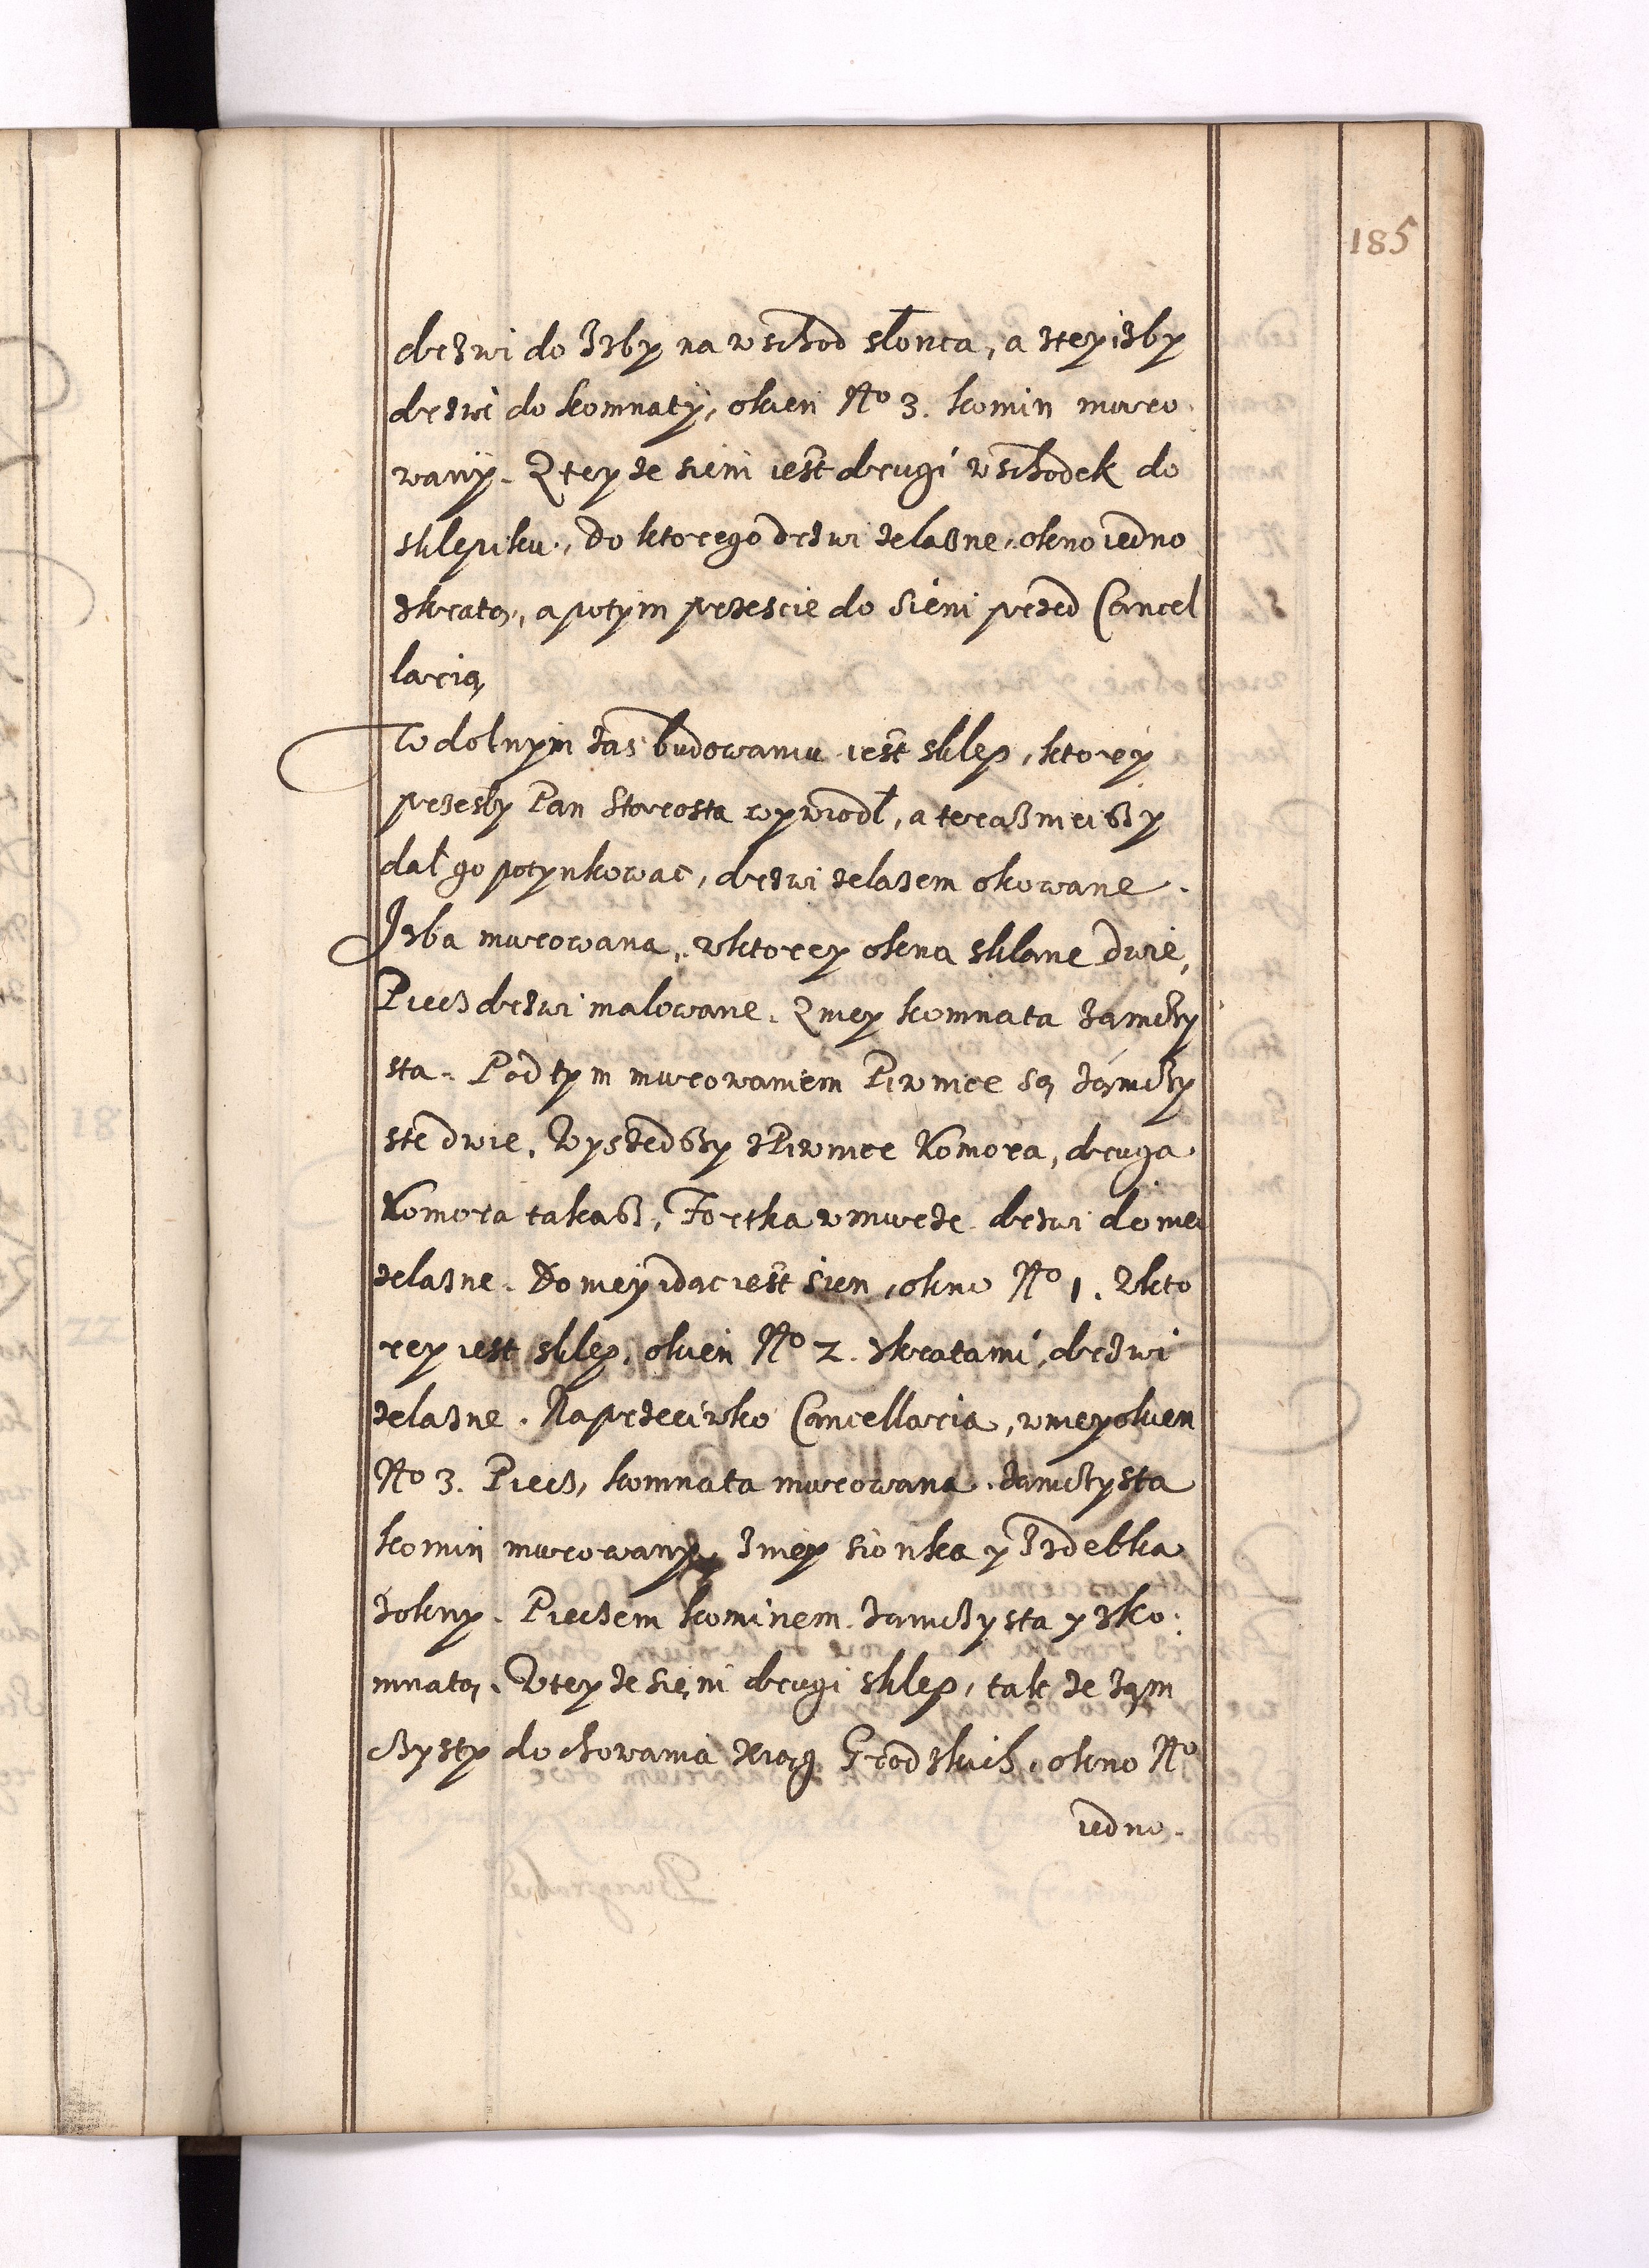 185
drzwi do Izby na wschod słonca, a ztey izby
drzwi do komnaty, okien No 3. komin muro
wany. Z tey ze sieni iest drugi wschodek do
sklepiku, do ktorego drzwi zelazne, okno iedno
zkratą, a potym przescie do sieni przed Cancel
larią,
W dolnym zas budowaniu iest sklep, ktory
przeszły Pan Starosta wywiodł, a teraznieiszy
dał go potynkowac, drzwi zelazem okowane.
Izba murowana, wktorey okna sklane dwie,
Piec z drzwi malowane. Zniey komnata zamczy
sta. Pod tym murowaniem Piwnice są zamczy
ste dwie. Wyszedszy zPiwnice Komora, druga
Komora takasz, Fortka wmurze drzwi do niei
zelazne. Do niey idac iest sien, okno No 1. Wkto
rey iest sklep, okien No 2. zkratami, drzwi
zelazne. Naprzeciwko Cancellaria, w niey okien
No 3. Piecz, komnata murowana zamczysta
komin murowany, zniey sionka y Izdebka
zokny. Piecem kominem zamczysta y zko
mnatą. Wtey ze sieni drugi sklep, tak ze zam
czysty do chowania xiąg Grodzkich, okno No
iedno.
18
22